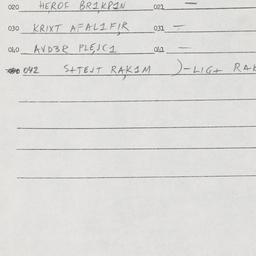 020 HEROF BR1KP1N 021 —
030 KRIXT AFAL1F1R 031 —
040 AVD3R PLEJC1 041 —
042 S+TEJT RAK1M )-LIG+ RAK